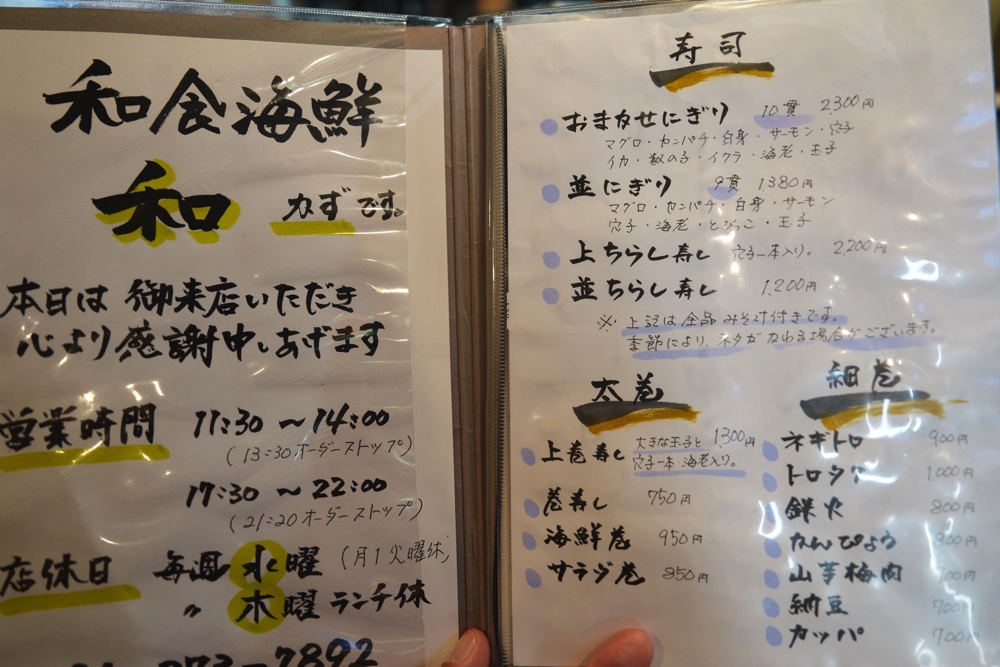 和食海鮮
和 かずです。
本日は御来店いただき
心より感謝申しあげます
営業時間 11:30 ~ 14:00
(13:30オーダーストップ)
17:30 ~ 22:00
(21:20オーダーストップ)
店休日 毎週水曜 (月1火曜休)
〃 木曜ランチ休
273-7892
寿司
おまかせにぎり 10貫 2,300円
マグロ・カンパチ・白身・サーモン・穴子
イカ・数の子・イクラ・海老・玉子
並にぎり 9貫 1380円
マグロ・カンパチ・白身・サーモン
穴子・海老・とびっこ・玉子
上ちらし寿し 穴子一本入り。 2,200円
並ちらし寿し 1,200円
※ 上記は全品みそ汁付きです。
季節により、ネタがかわる場合がございます。
太巻
上巻寿し 大きな玉子と 1,300円
穴子一本・海老入り。
巻寿し 750円
海鮮巻 950円
サラダ巻 850円
細巻
ネギトロ 900円
トロタク 1,000円
鉄火 800円
かんぴょう
山芋梅肉
納豆 700円
カッパ 700円